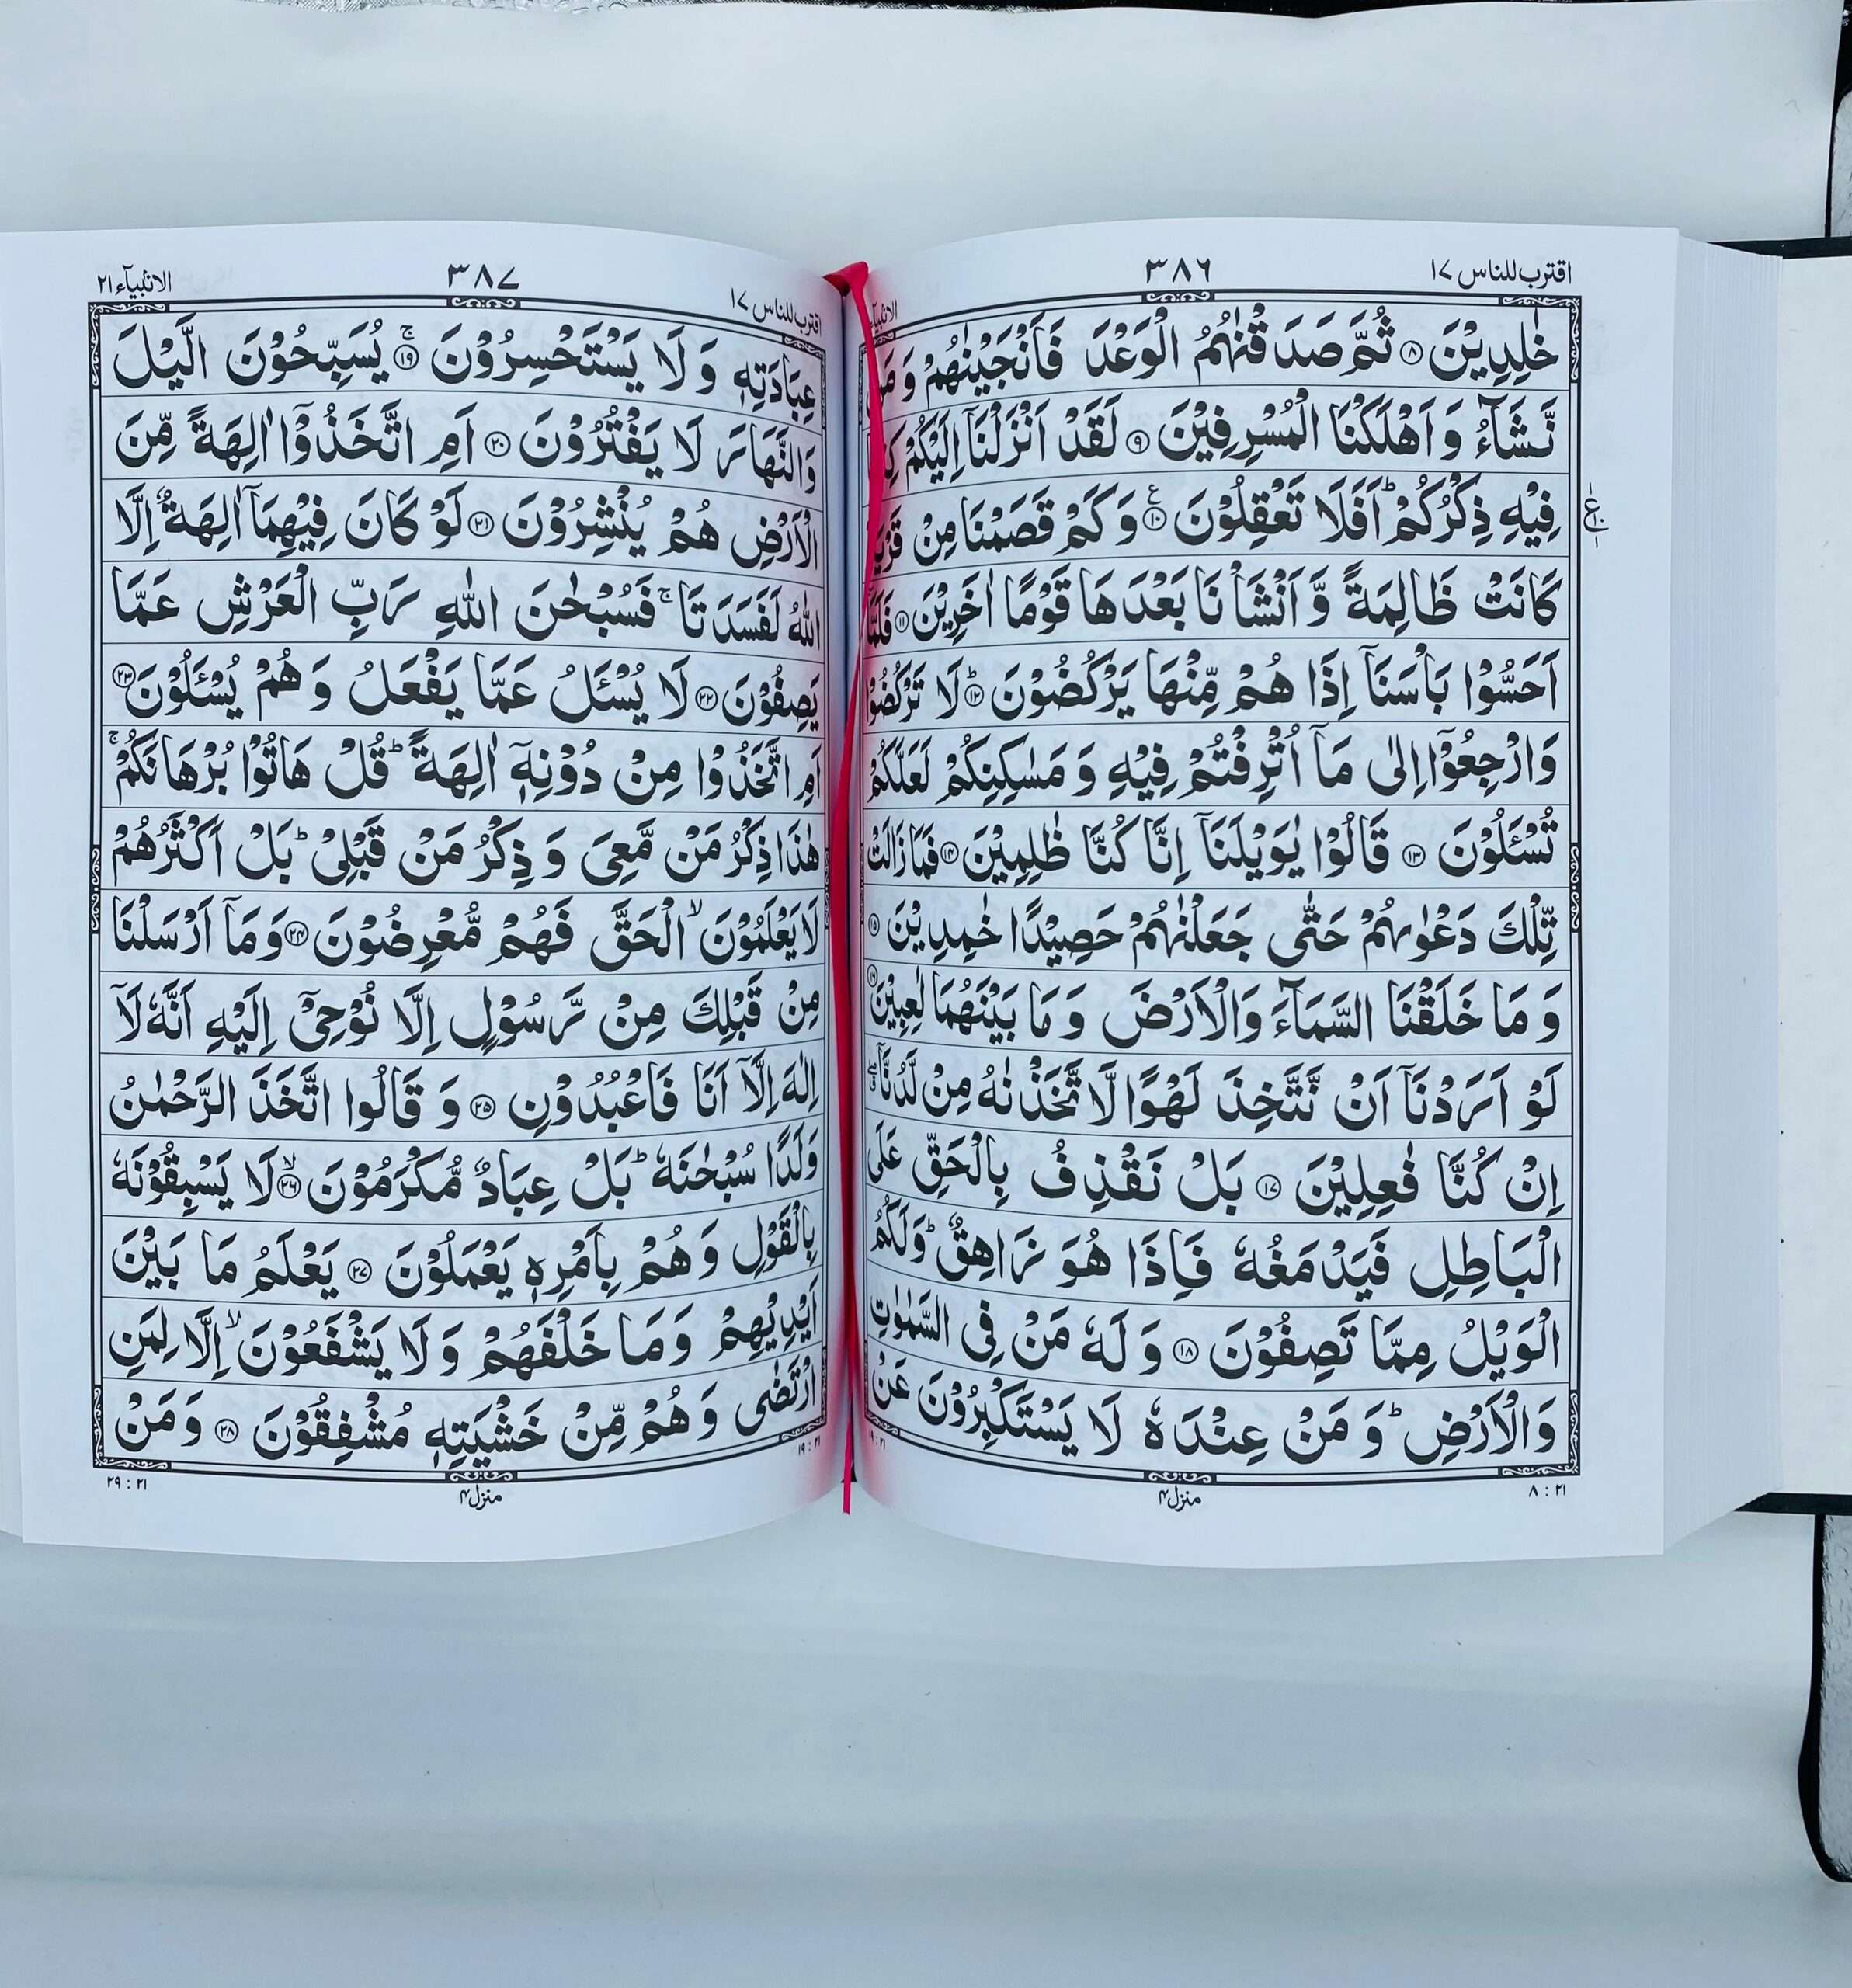 اقترب للناس ١٧
٣٨٦
خٰلِدِيْنَ ۸ ثُمَّ صَدَقْنٰهُمُ الْوَعْدَ فَاَنْجَيْنٰهُمْ وَ
نَّشَآءُ وَ اَهْلَكْنَا الْمُسْرِفِيْنَ ۹ لَقَدْ اَنْزَلْنَاۤ اِلَيْكُمْ
فِيْهِ ذِكْرُكُمْ ؕ اَفَلَا تَعْقِلُوْنَ ۱۰ ع وَ كَمْ قَصَمْنَا مِنْ
كَانَتْ ظَالِمَةً وَّ اَنْشَاْنَا بَعْدَهَا قَوْمًا اٰخَرِيْنَ ۱۱ فَلَمَّاۤ
اَحَسُّوْا بَاْسَنَاۤ اِذَا هُمْ مِّنْهَا يَرْكُضُوْنَ ؕ ۱۲ لَا تَرْكُضُوْا
وَارْجِعُوْۤا اِلٰى مَاۤ اُتْرِفْتُمْ فِيْهِ وَ مَسٰكِنِكُمْ لَعَلَّكُمْ
تُسْـَٔلُوْنَ ۱۳ قَالُوْا يٰوَيْلَنَاۤ اِنَّا كُنَّا ظٰلِمِيْنَ ۱۴ فَمَا زَالَتْ
تِّلْكَ دَعْوٰىهُمْ حَتّٰى جَعَلْنٰهُمْ حَصِيْدًا خٰمِدِيْنَ ۱۵
وَ مَا خَلَقْنَا السَّمَآءَ وَالْاَرْضَ وَ مَا بَيْنَهُمَا لٰعِبِيْنَ ۱۶
لَوْ اَرَدْنَاۤ اَنْ نَّتَّخِذَ لَهْوًا لَّا تَّخَذْنٰهُ مِنْ لَّدُنَّاۤ
اِنْ كُنَّا فٰعِلِيْنَ ۱۷ بَلْ نَقْذِفُ بِالْحَقِّ عَلَى
الْبَاطِلِ فَيَدْمَغُهٗ فَاِذَا هُوَ زَاهِقٌ ؕ وَلَكُمُ
الْوَيْلُ مِمَّا تَصِفُوْنَ ۱۸ وَ لَهٗ مَنْ فِى السَّمٰوٰتِ
وَالْاَرْضِ ؕ وَ مَنْ عِنْدَهٗ لَا يَسْتَكْبِرُوْنَ عَنْ
۲۱ : ۸
منزل ۴
۲۱ : ۱۹
اقترب للناس ١٧
٣٨٧
الانبياء ٢١
عِبَادَتِهٖ وَ لَا يَسْتَحْسِرُوْنَ ۚ ۱۹ يُسَبِّحُوْنَ الَّيْلَ
وَالنَّهَارَ لَا يَفْتُرُوْنَ ۲۰ اَمِ اتَّخَذُوْۤا اٰلِهَةً مِّنَ
الْاَرْضِ هُمْ يُنْشِرُوْنَ ۲۱ لَوْ كَانَ فِيْهِمَاۤ اٰلِهَةٌ اِلَّا
اللّٰهُ لَفَسَدَتَا ۚ فَسُبْحٰنَ اللّٰهِ رَبِّ الْعَرْشِ عَمَّا
يَصِفُوْنَ ۲۲ لَا يُسْـَٔلُ عَمَّا يَفْعَلُ وَ هُمْ يُسْـَٔلُوْنَ ۲۳
اَمِ اتَّخَذُوْا مِنْ دُوْنِهٖۤ اٰلِهَةً ؕ قُلْ هَاتُوْا بُرْهَانَكُمْ ۚ
هٰذَا ذِكْرُ مَنْ مَّعِىَ وَ ذِكْرُ مَنْ قَبْلِىْ ؕ بَلْ اَكْثَرُهُمْ
لَا يَعْلَمُوْنَ ۙ الْحَقَّ فَهُمْ مُّعْرِضُوْنَ ۲۴ وَ مَاۤ اَرْسَلْنَا
مِنْ قَبْلِكَ مِنْ رَّسُوْلٍ اِلَّا نُوْحِىْۤ اِلَيْهِ اَنَّهٗ لَاۤ
اِلٰهَ اِلَّاۤ اَنَا فَاعْبُدُوْنِ ۲۵ وَ قَالُوا اتَّخَذَ الرَّحْمٰنُ
وَلَدًا سُبْحٰنَهٗ ؕ بَلْ عِبَادٌ مُّكْرَمُوْنَ ۙ ۲۶ لَا يَسْبِقُوْنَهٗ
بِالْقَوْلِ وَ هُمْ بِاَمْرِهٖ يَعْمَلُوْنَ ۲۷ يَعْلَمُ مَا بَيْنَ
اَيْدِيْهِمْ وَ مَا خَلْفَهُمْ وَ لَا يَشْفَعُوْنَ ۙ اِلَّا لِمَنِ
ارْتَضٰى وَ هُمْ مِّنْ خَشْيَتِهٖ مُشْفِقُوْنَ ۲۸ وَ مَنْ
۲۱ : ۱۹
منزل ۴
۲۱ : ۲۹